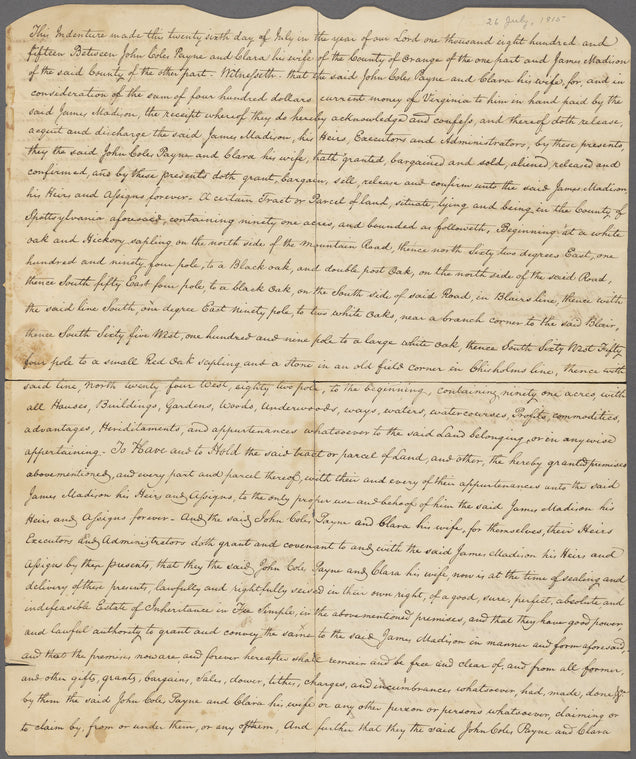 26 July, 1815
This Indenture made this twenty sixth day of July in the year of our Lord one thousand eight hundred and
fifteen Between John Coles Payne and Clara his wife of the County of Orange of the one part and James Madison
of the said County of the other part. Witnesseth. that the said John Coles Payne and Clara his wife, for, and in
consideration of the sum of four hundred dollars current money of Virginia to him in hand paid by the
said James Madison, the receipt whereof they do hereby acknowledge and confess, and thereof doth release,
acquit and discharge the said James Madison, his Heirs Executors and Administrators, by these presents,
they the said John Coles Payne and Clara his wife, hath granted, bargained and sold, aliened, released and
confirmed, and by these presents doth grant, bargain, sell, release and confirm unto the said James Madison
his Heirs and Assigns forever - A certain Tract or Parcel of land, situate, lying and being in the County of
Spottsylvania aforesaid, containing ninety one acres, and bounded as followeth, Beginning at a white
oak and Hickory sapling on the north side of the mountain Road, thence north Sixty two degrees East, one
hundred and ninety four pole, to a Black oak, and double post Oak, on the north side of the said Road,
thence South fifty East four pole, to a black Oak, on the South side of said Road, in Blairs line, thence with
the said line South, one degree East ninety pole, to two white Oaks, near a branch corner to the said Blair,
thence South Sixty five West, one hundred and nine pole to a large white oak, thence South Sixty West Fifty
four pole to a small Red Oak sapling and a Stone in an old field corner in Chisholms line, thence with
said line, North twenty four West, eighty two pole, to the beginning, containing ninety one acres, with
all Houses, Buildings, Gardens, Woods, Underwoods, ways, waters, watercourses, Profits, commodities,
advantages, Heriditaments, and appurtenances whatsoever to the said Land belonging, or in any wise
appertaining - To Have and to Hold the said tract or parcel of Land, and other, the hereby granted premises
abovementioned, and every part and parcel thereof, with their and every of their appurtenances unto the said
James Madison his Heirs and Assigns, to the only proper use and behoof of him the said James Madison his
Heirs and Assigns forever - And the said John Coles Payne and Clara his wife, for themselves, their Heirs
Executors and Administrators doth grant and covenant to and with the said James Madison his Heirs and
Assigns by these presents, that they the said John Coles Payne and Clara his wife, now is at the time of sealing and
delivery of these presents, lawfully and rightfully seised in their own right, of a good, sure, perfect, absolute and
indefeasible Estate of Inheritance in Fee Simple, in the abovementioned premises, and that they have good power
and lawful authority to grant and convey the same to the said James Madison in manner and form aforesaid, -
and that the premises now are and forever hereafter shall remain and be free and clear of, and from all former,
and other gifts, grants, bargains, sales, dower, titles, charges, and incumbrances whatsoever, had, made, done &c
by them the said John Coles Payne and Clara his wife or any other person or persons whatsoever, claiming or
to claim by, from or under them, or any of them, And further that they the said John Coles Payne and Clara